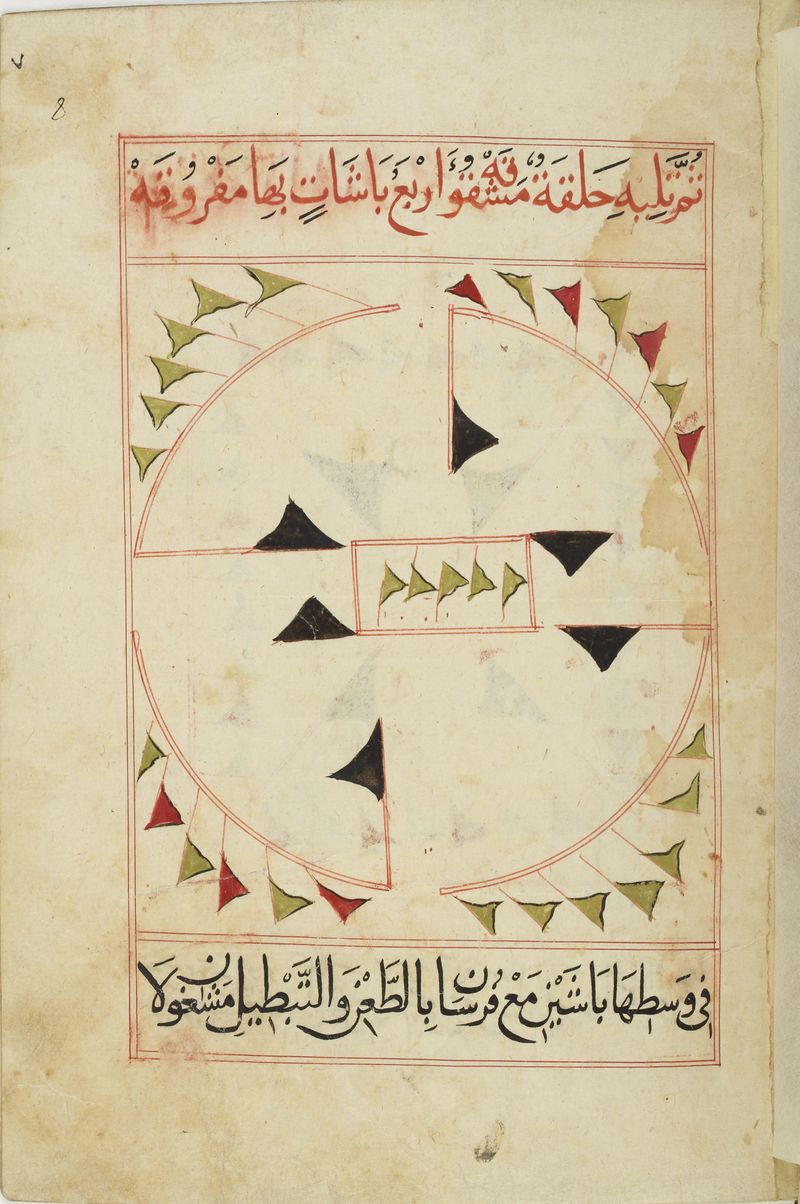 ٧
8
ثُمَّ تَلِيهِ حَلقَةٌ مَشقُوقَهْ وَاربَعُ بَاشَاتٍ بِهَا مَفْرُوقَهْ
فِي وَسطِهَا بَاشَيْنِ مَعْ فُرسَانِ بِالطَّعْنِ وَالتَّبْطِيلِ مَشغُولَانِ